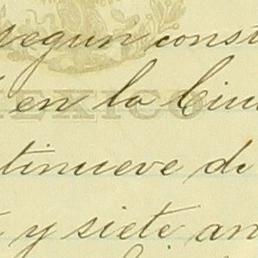 segun const
en la Ciu
MEXICO
tinueve de
y siete an